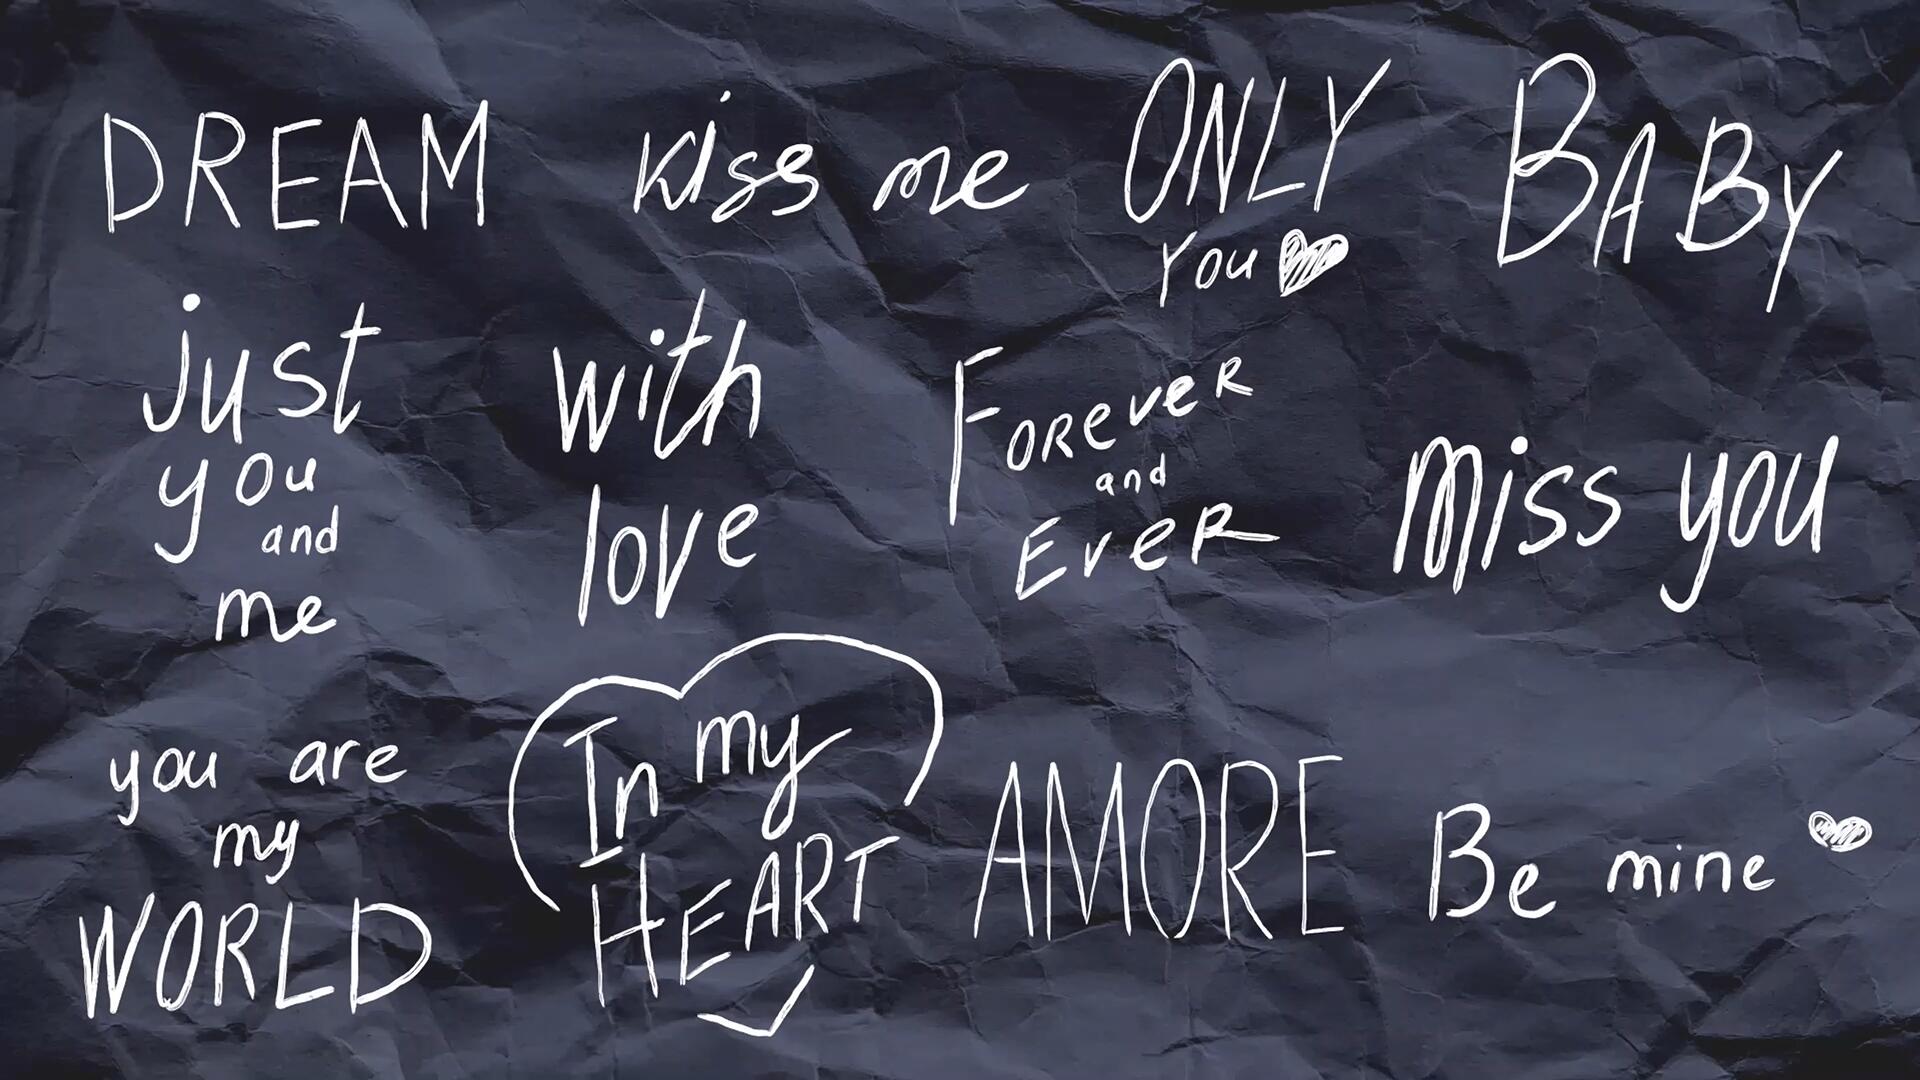 DREAM
Kiss me
ONLY
You
BABY
just
you
and
me
with
love
FOReveR
and
EveR
Miss you
you are
my
WORLD
In my
HEART
AMORE
Be mine